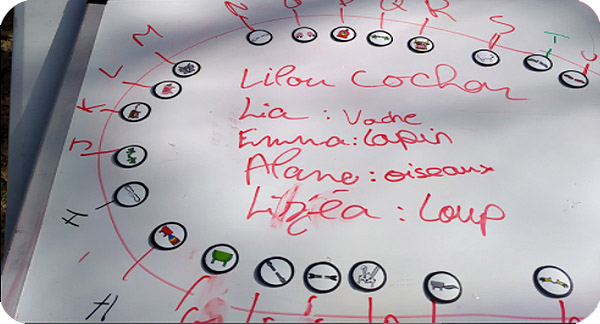 N O P Q R S T U
M
L
K
J
H
H
Lilou Cochon
Lia : Vache
Emma : Lapin
Alane : oiseaux
Lizéa : Loup